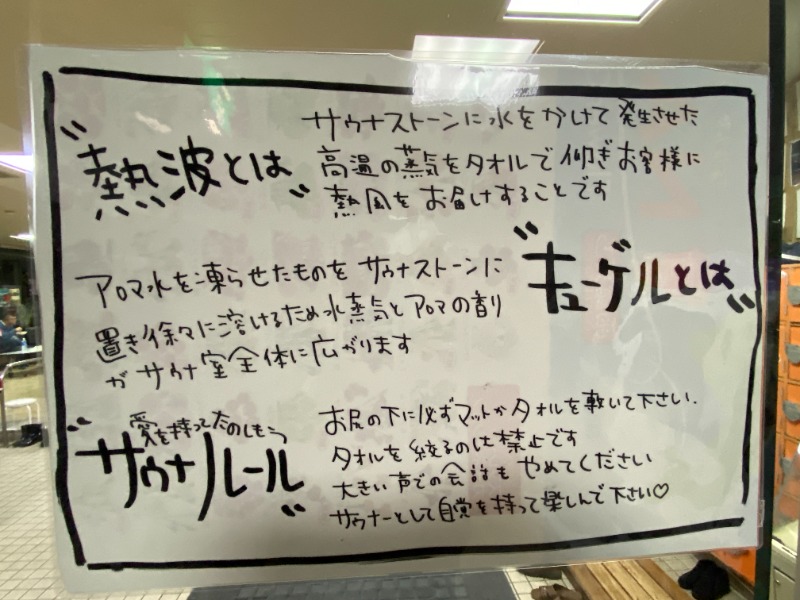 "熱波とは"
サウナストーンに水をかけて発生させた
高温の蒸気をタオルで仰ぎお客様に
熱風をお届けすることです
"キューゲルとは"
アロマ水を凍らせたものをサウナストーンに
置き徐々に溶けるため水蒸気とアロマの香り
がサウナ室全体に広がります
愛を持ってたのしもう
"サウナルール"
お尻の下に必ずマットかタオルを敷いて下さい.
タオルを絞るのは禁止です
大きい声での会話もやめてください
サウナーとして自覚を持って楽しんで下さい♡